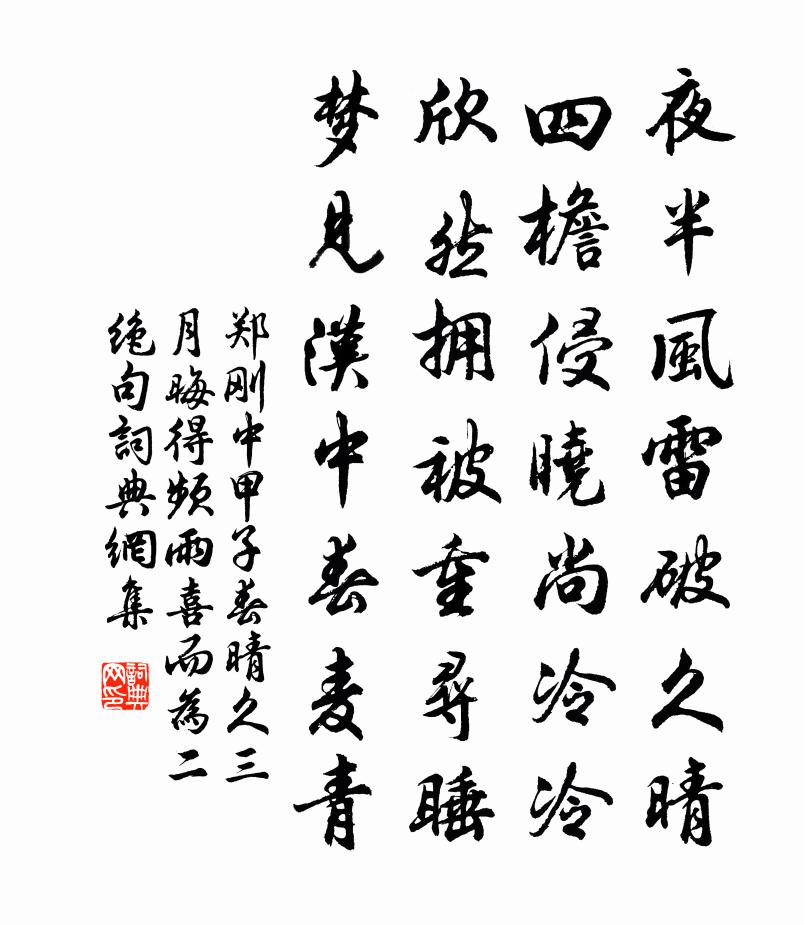 夜半風雷破久晴
四檐侵曉尚冷冷
欣然拥被重尋睡
梦見漢中春麦青
郑刚中甲子春晴久三
月晦得频雨喜而為二
绝句詞典網集
詞典网印